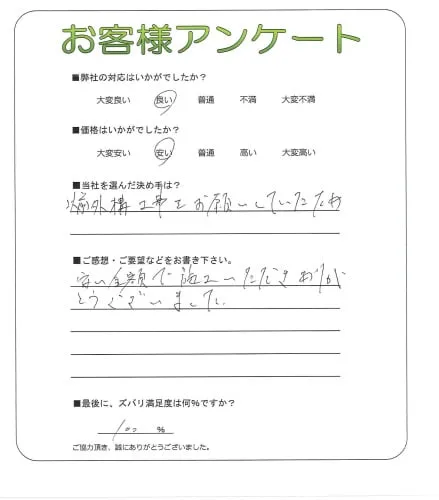 お客様アンケート
■弊社の対応はいかがでしたか？
大変良い 良い 普通 不満 大変不満
■価格はいかがでしたか？
大変安い 安い 普通 高い 大変高い
■当社を選んだ決め手は？
以前外構工事をお願いしていたため
■ご感想・ご要望などをお書き下さい。
安い金額で施工いただきありが
とうございました。
■最後に、ズバリ満足度は何％ですか？
100 ％
ご協力頂き、誠にありがとうございました。